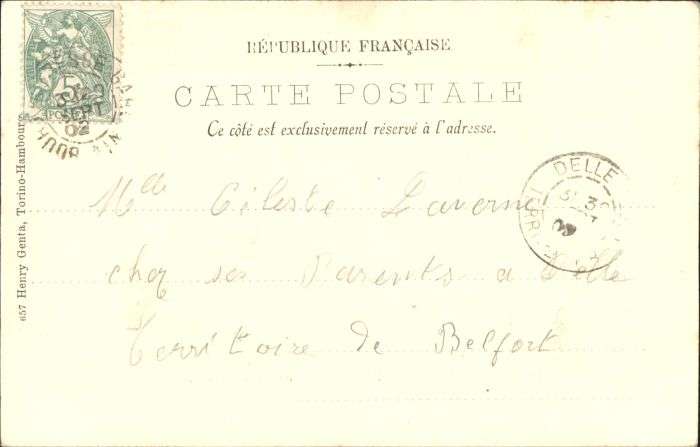 RÉPUBLIQUE FRANÇAISE
CARTE POSTALE
Ce côté est exclusivement réservé à l'adresse.
Mlle Céleste Laverne
chez ses Parents a Delle
Territoire de Belfort
657 Henry Genta, Torino-Hambourg
5
SEPT
02
DELLE